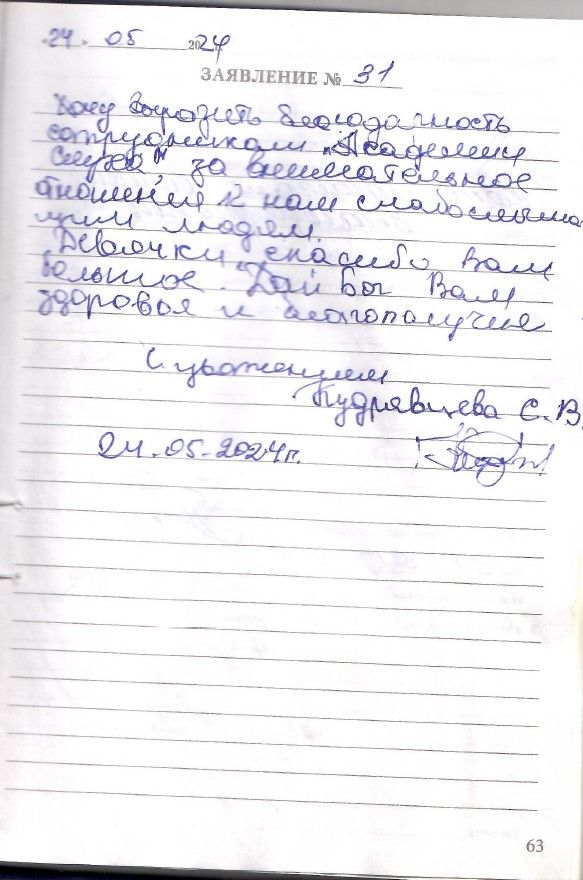 24. 05 2024
ЗАЯВЛЕНИЕ № 31
Хочу выразить благодарность
сотрудникам „Академии
Слуха" за внимательное
отношения к нам слабослыша
щим людям.
Девочки, спасибо Вам
большое. Дай Бог Вам
здоровья и благополучия
С уважением
Кудрявцева С. В.
24.05.2024г.
63